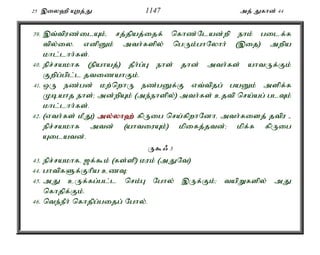 25 இலைஹி யுறத்து 1147 அத் துகான் 44
39. இவ்விரண்டையும், சத்தியத்தைக் கொண்டேயன்றி நாம் படைக்க
வில்லை. எனினும் அவர்களில் பெரும்பாலோர் (இதை) அறிய
மாட்டார்கள்.
40. நிச்சயமாக (நியாயத்) தீர்ப்பு நாள் தான் அவர்கள் யாவருக்கும்
குறிப்பிட்ட தவணையாகும்.
41. ஒரு நண்பன் மற்றொரு நண்பனுக்கு எவ்விதப் பயனும் அளிக்க
முடியாத நாள்; அன்றியும் (அந்நாளில்) அவர்கள் உதவி செய்யப் படவும்
மாட்டார்கள்.
42. (எவர்கள் மீது) அல்லாஹ் கிருபை செய்கிறானோ, அவர்களைத் தவிர -
நிச்சயமாக அவன் (யாவரையும்) மிகைத்தவன்; மிக்க கிருபை
யுடையவன்.
ருகூஃ 3
43. நிச்சயமாக, ஜக்கூம் (கள்ளி) மரம் (அதுவே)
44. பாவிகளுக்குரிய உணவு;
45. அது உருக்கப்பட்ட செம்பு போல் இருக்கும்; வயிறுகளில் அது
கொதிக்கும்.
46. வெந்நீர் கொதிப்பதைப் போல்.